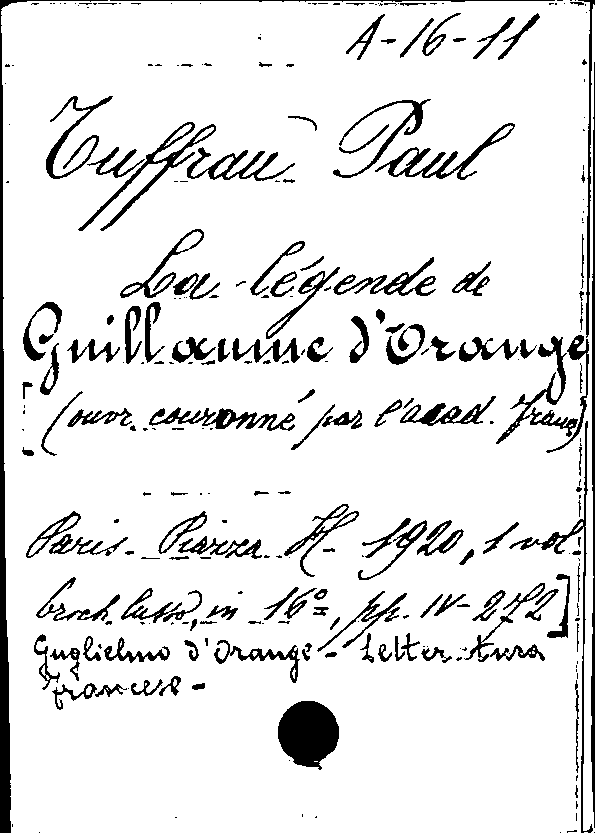 A-16-11
Tuffrau Paul
La légende de
Guillaume d'Orange
(ouvr. couronné par l'acad. franç)
Paris - Piazza H - 1920, 1 vol.
broch. lusso, in 16º, pp. IV-272]
Guglielmo d'Orange - Letteratura
Francese -